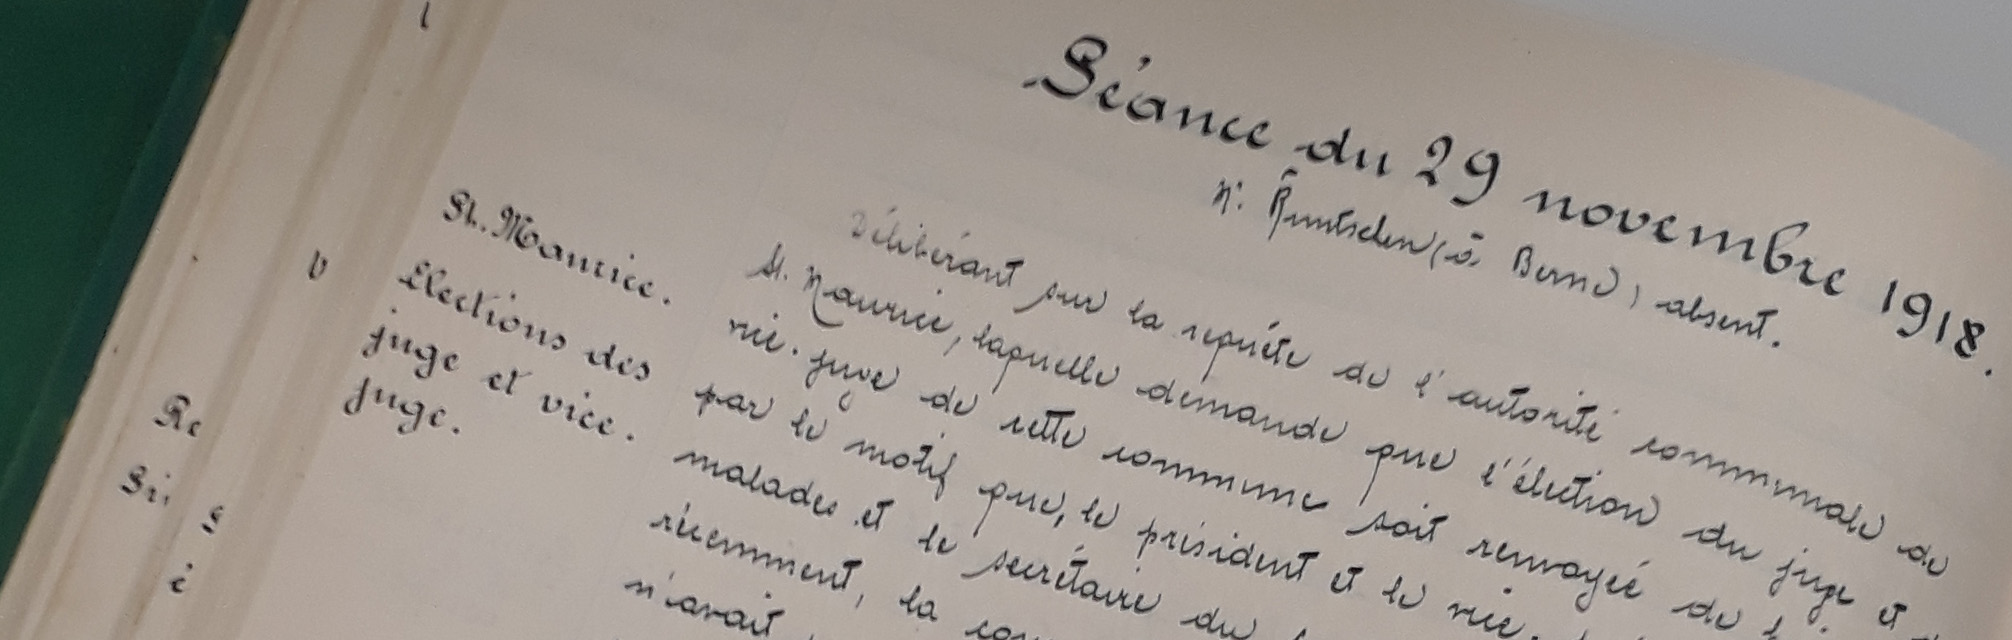 Séance du 29 novembre 1918.
(à Berne), absent.
St. Maurice.
Elections des
juge et vice.
juge.
Délibérant sur la requête de l'autorité communale de
St. Maurice, laquelle demande que l'élection du juge et
vice-juge de cette commune soit renvoyée de
par le motif que, le président et le vice-
malades et le secrétaire du
récemment, la
n'avait
Re